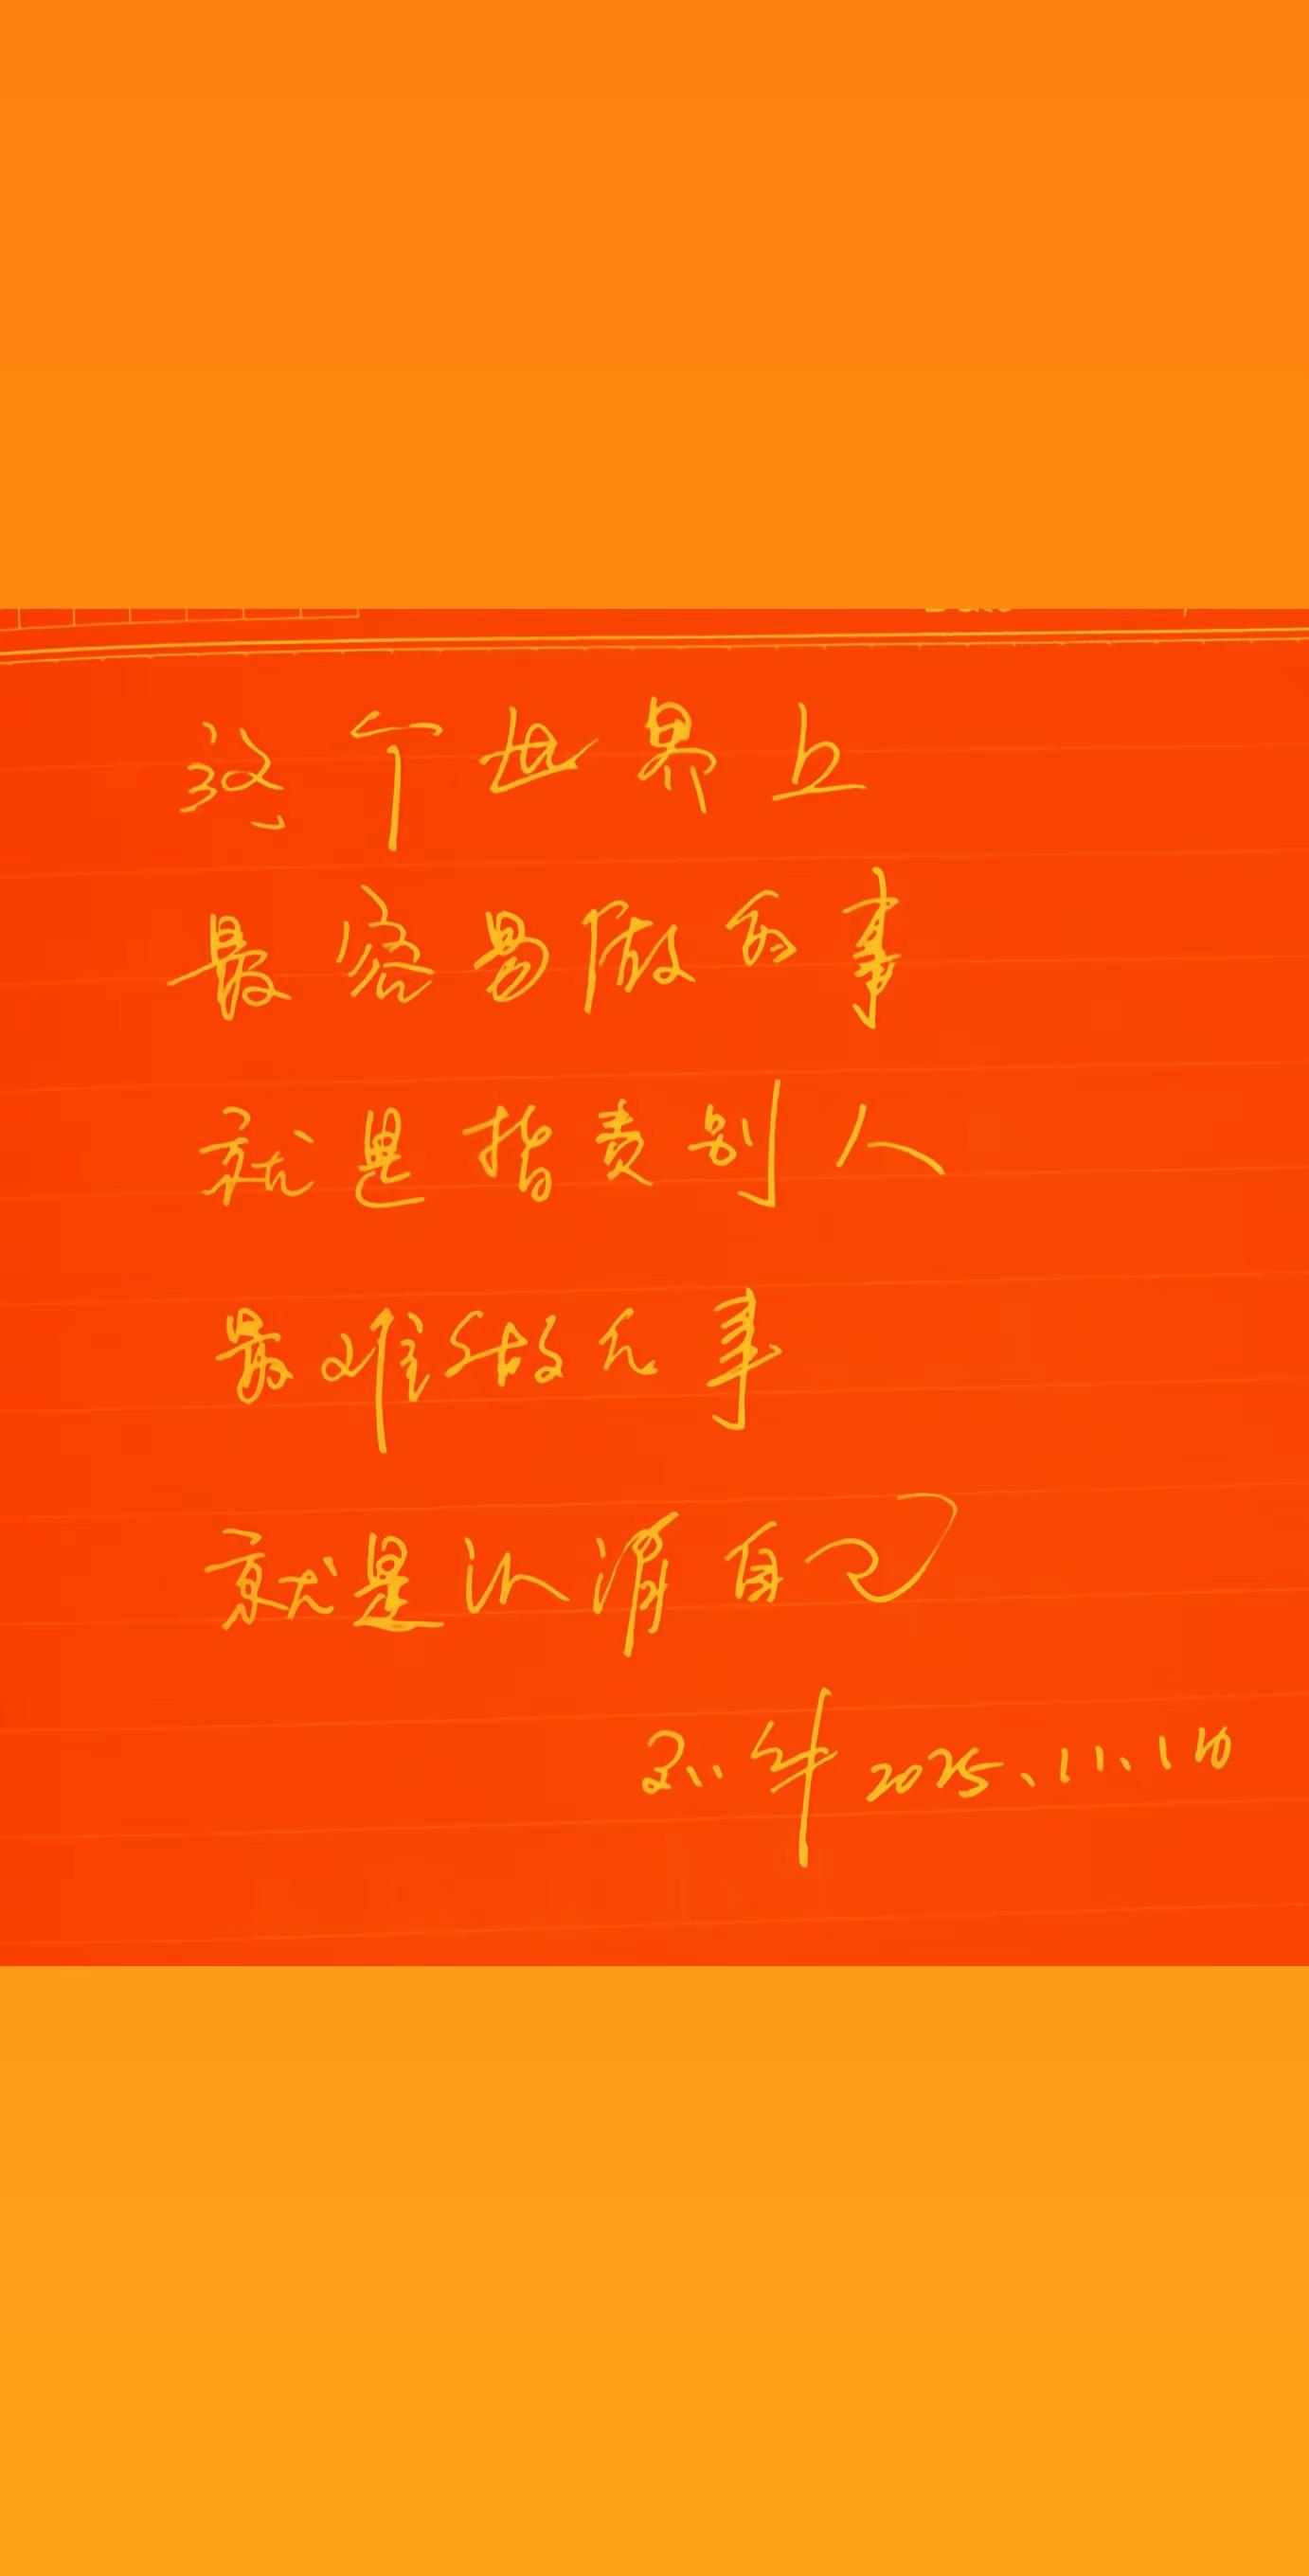 这个世界上
最容易做的事
就是指责别人
最难做的事
就是认清自己
2025、11、1